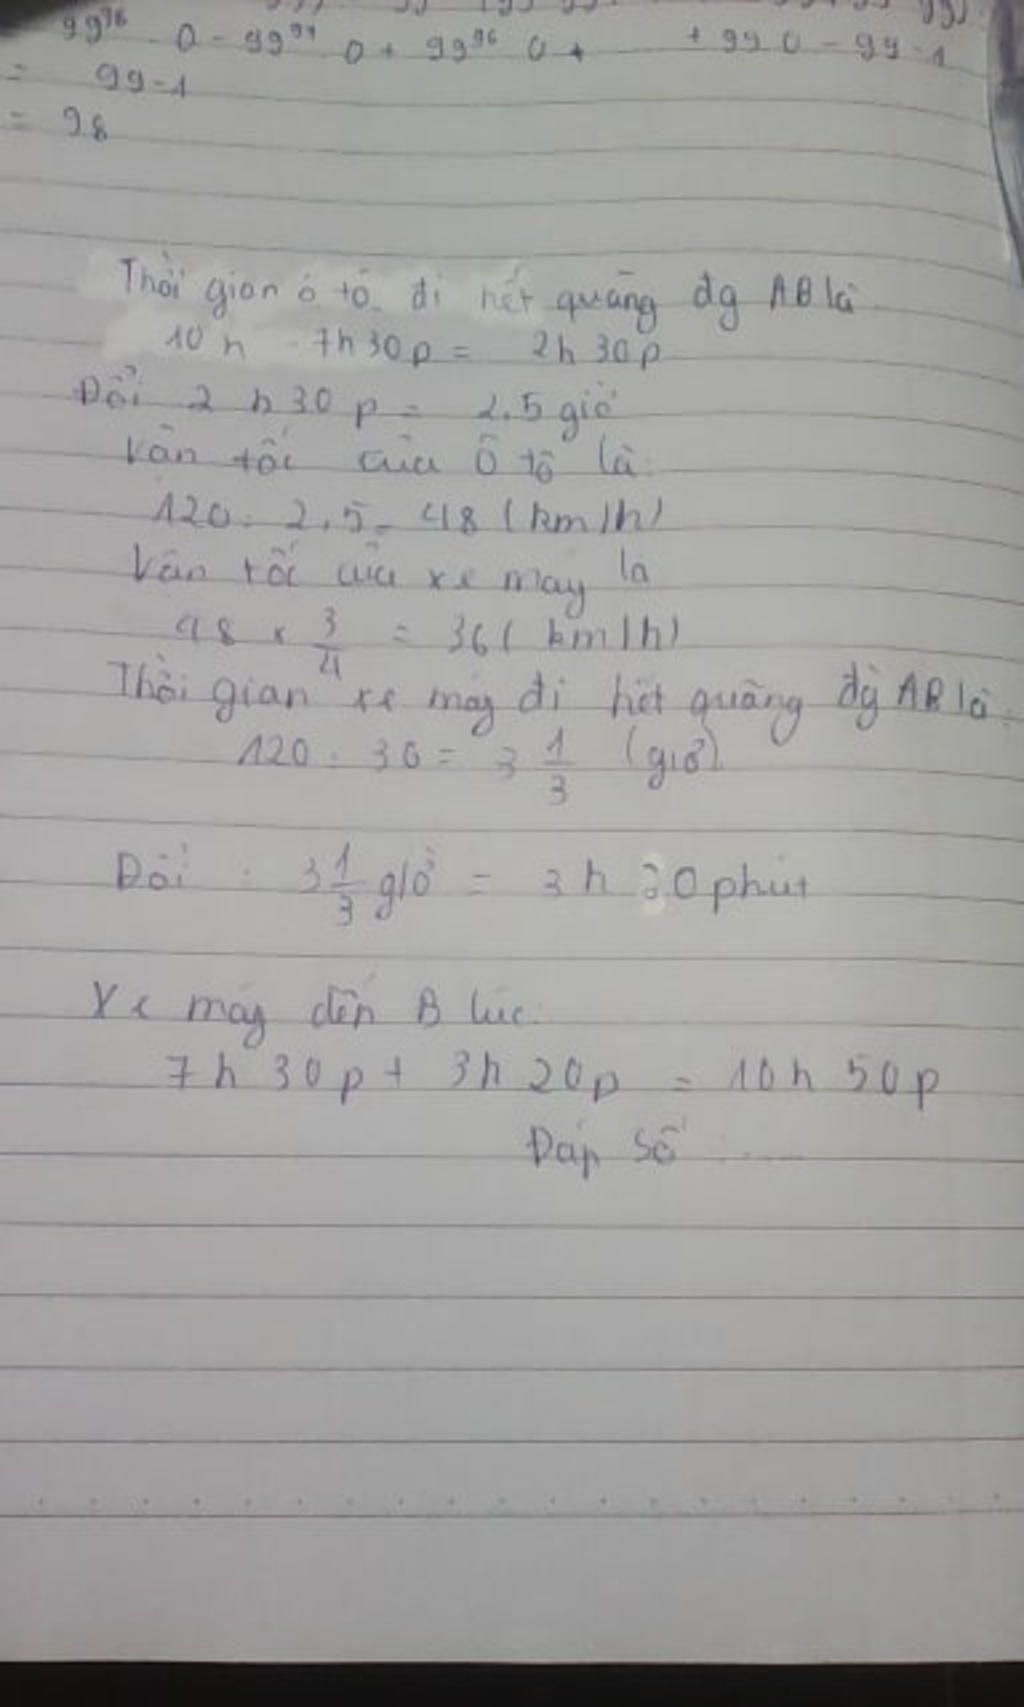 99⁹⁸ 0 - 99⁹⁷ 0 + 99⁹⁶ 0 + + 99 0 - 99 - 1
= 99-1
= 98
Thời gian ô tô đi hết quãng đg AB là
10 h - 7h30p = 2h 30p
Đổi 2 h 30 p = 2,5 giờ
Vân tốc của Ô tô là:
120 : 2,5 = 48 (km/h)
Vân tốc của xe máy là
48 × 3/4 = 36 (km/h)
Thời gian xe máy đi hết quãng đg AB là:
120 : 36 = 3 1/3 (giờ)
Đổi : 3 1/3 giờ = 3 h 20 phút
Xe máy đến B lúc:
7h 30p + 3h 20p = 10h 50p
Đáp số .....